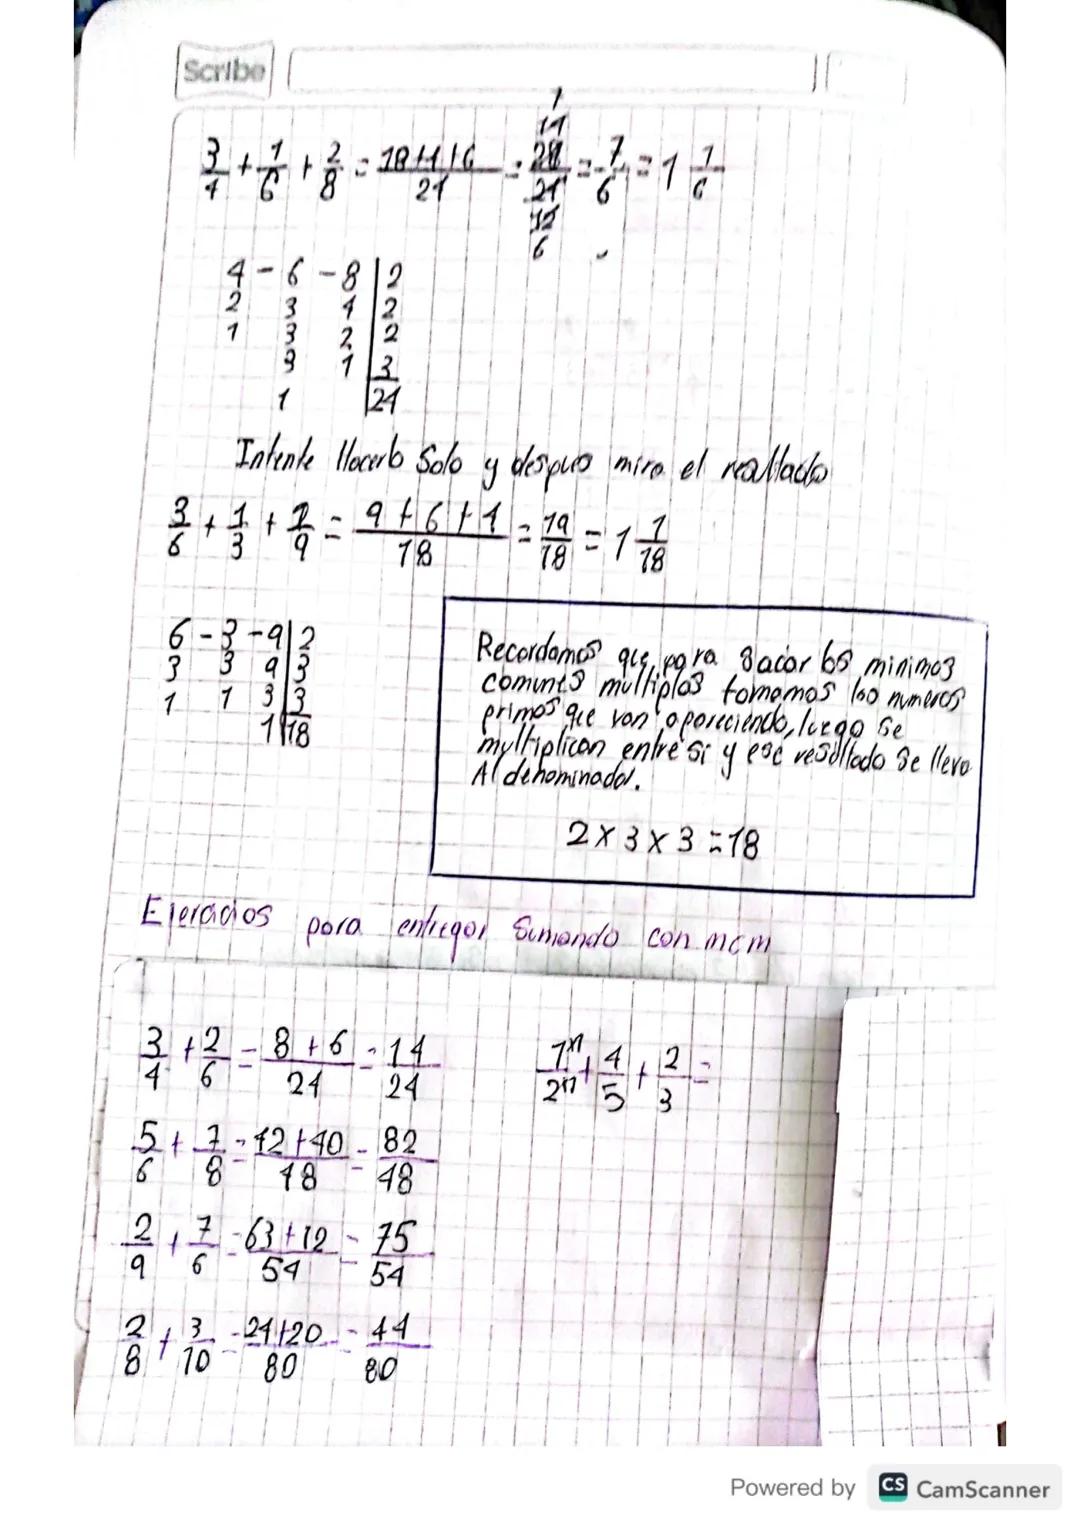 Scribe
3/4 + 1/6 + 2/8 = 18+4+6/24 = 28/24 = 7/6 = 1 1/6
14
12
6
4 - 6 - 8 | 2
2 3 4 | 2
1 3 2 | 2
3 1 | 3
1 | 24
Intente Hacerlo Solo y despues mira el resultado
3/6 + 1/3 + 2/9 = 9 + 6 + 4/18 = 19/18 = 1 1/18
6 - 3 - 9 | 2
3 3 9 | 3
1 1 3 | 3
1 | 18
Recordamos que, para sacar los minimos
comunes multiplos tomamos los numeros
primos que van apareciendo, luego se
multiplican entre si y ese resultado se lleva
Al denominador.
2 x 3 x 3 = 18
Ejercicios para entregar Sumando con mcm
3/4 + 2/6 = 8 + 6/24 = 14/24
7/2 + 4/5 + 2/3 =
5/6 + 7/8 = 42+40/48 = 82/48
2/9 + 7/6 = 63+12/54 = 75/54
2/8 + 3/10 = 24+20/80 = 44/80
Powered by CS CamScanner